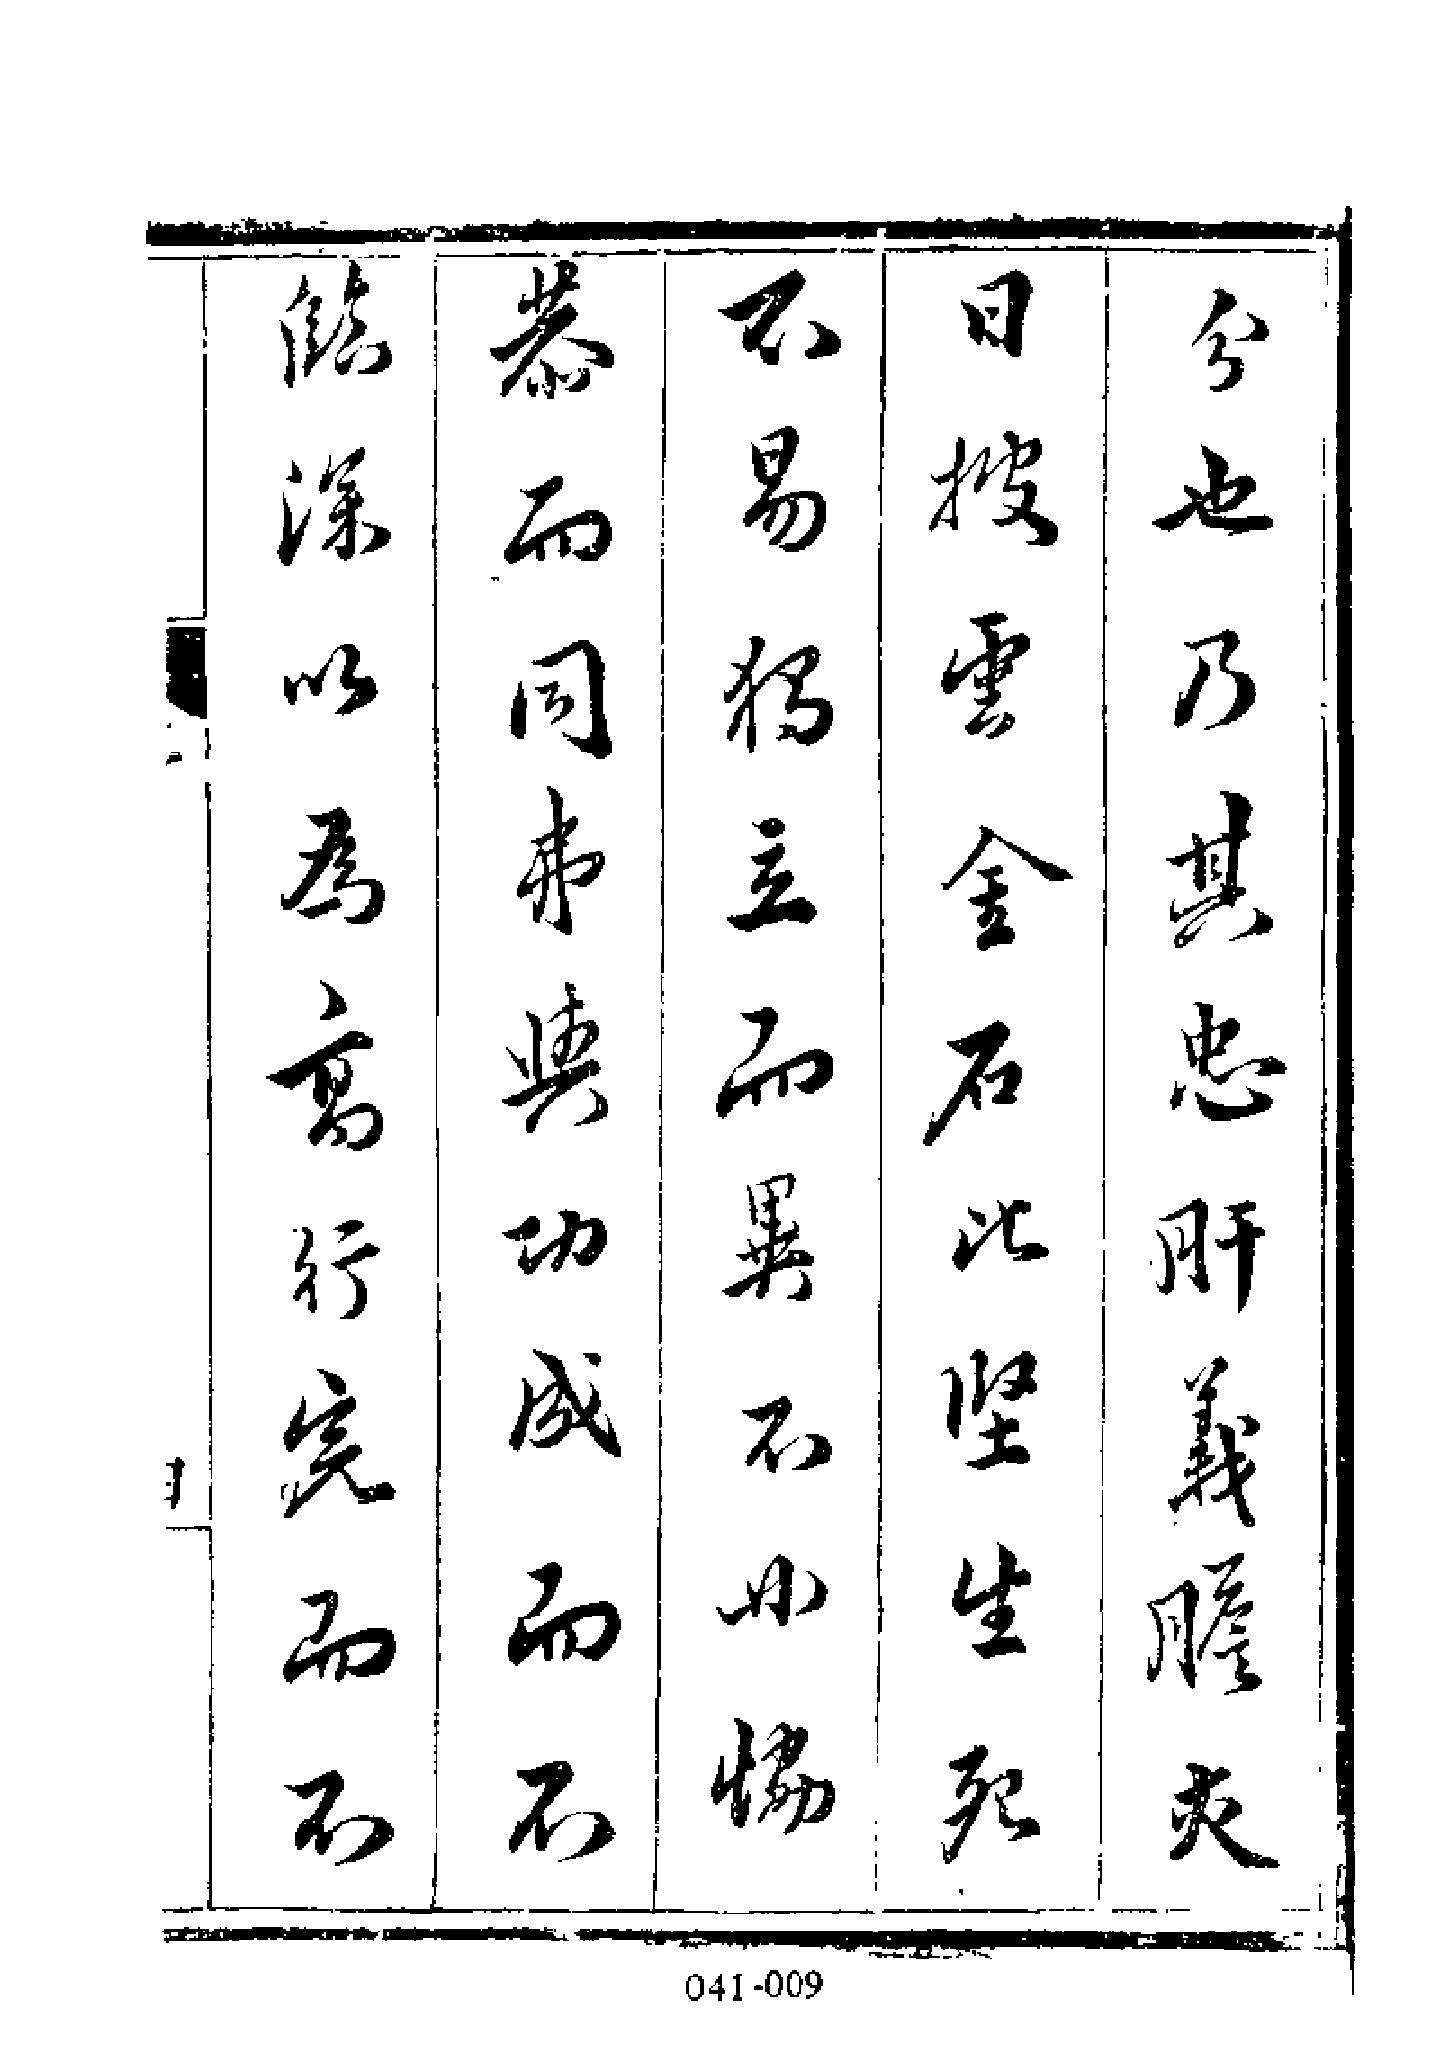 分也乃其忠肝義膽夾
日披雲金石比堅生死
不易獨立而異不必恊
恭而同弗與功成而不
深以為高行完而不
041-009